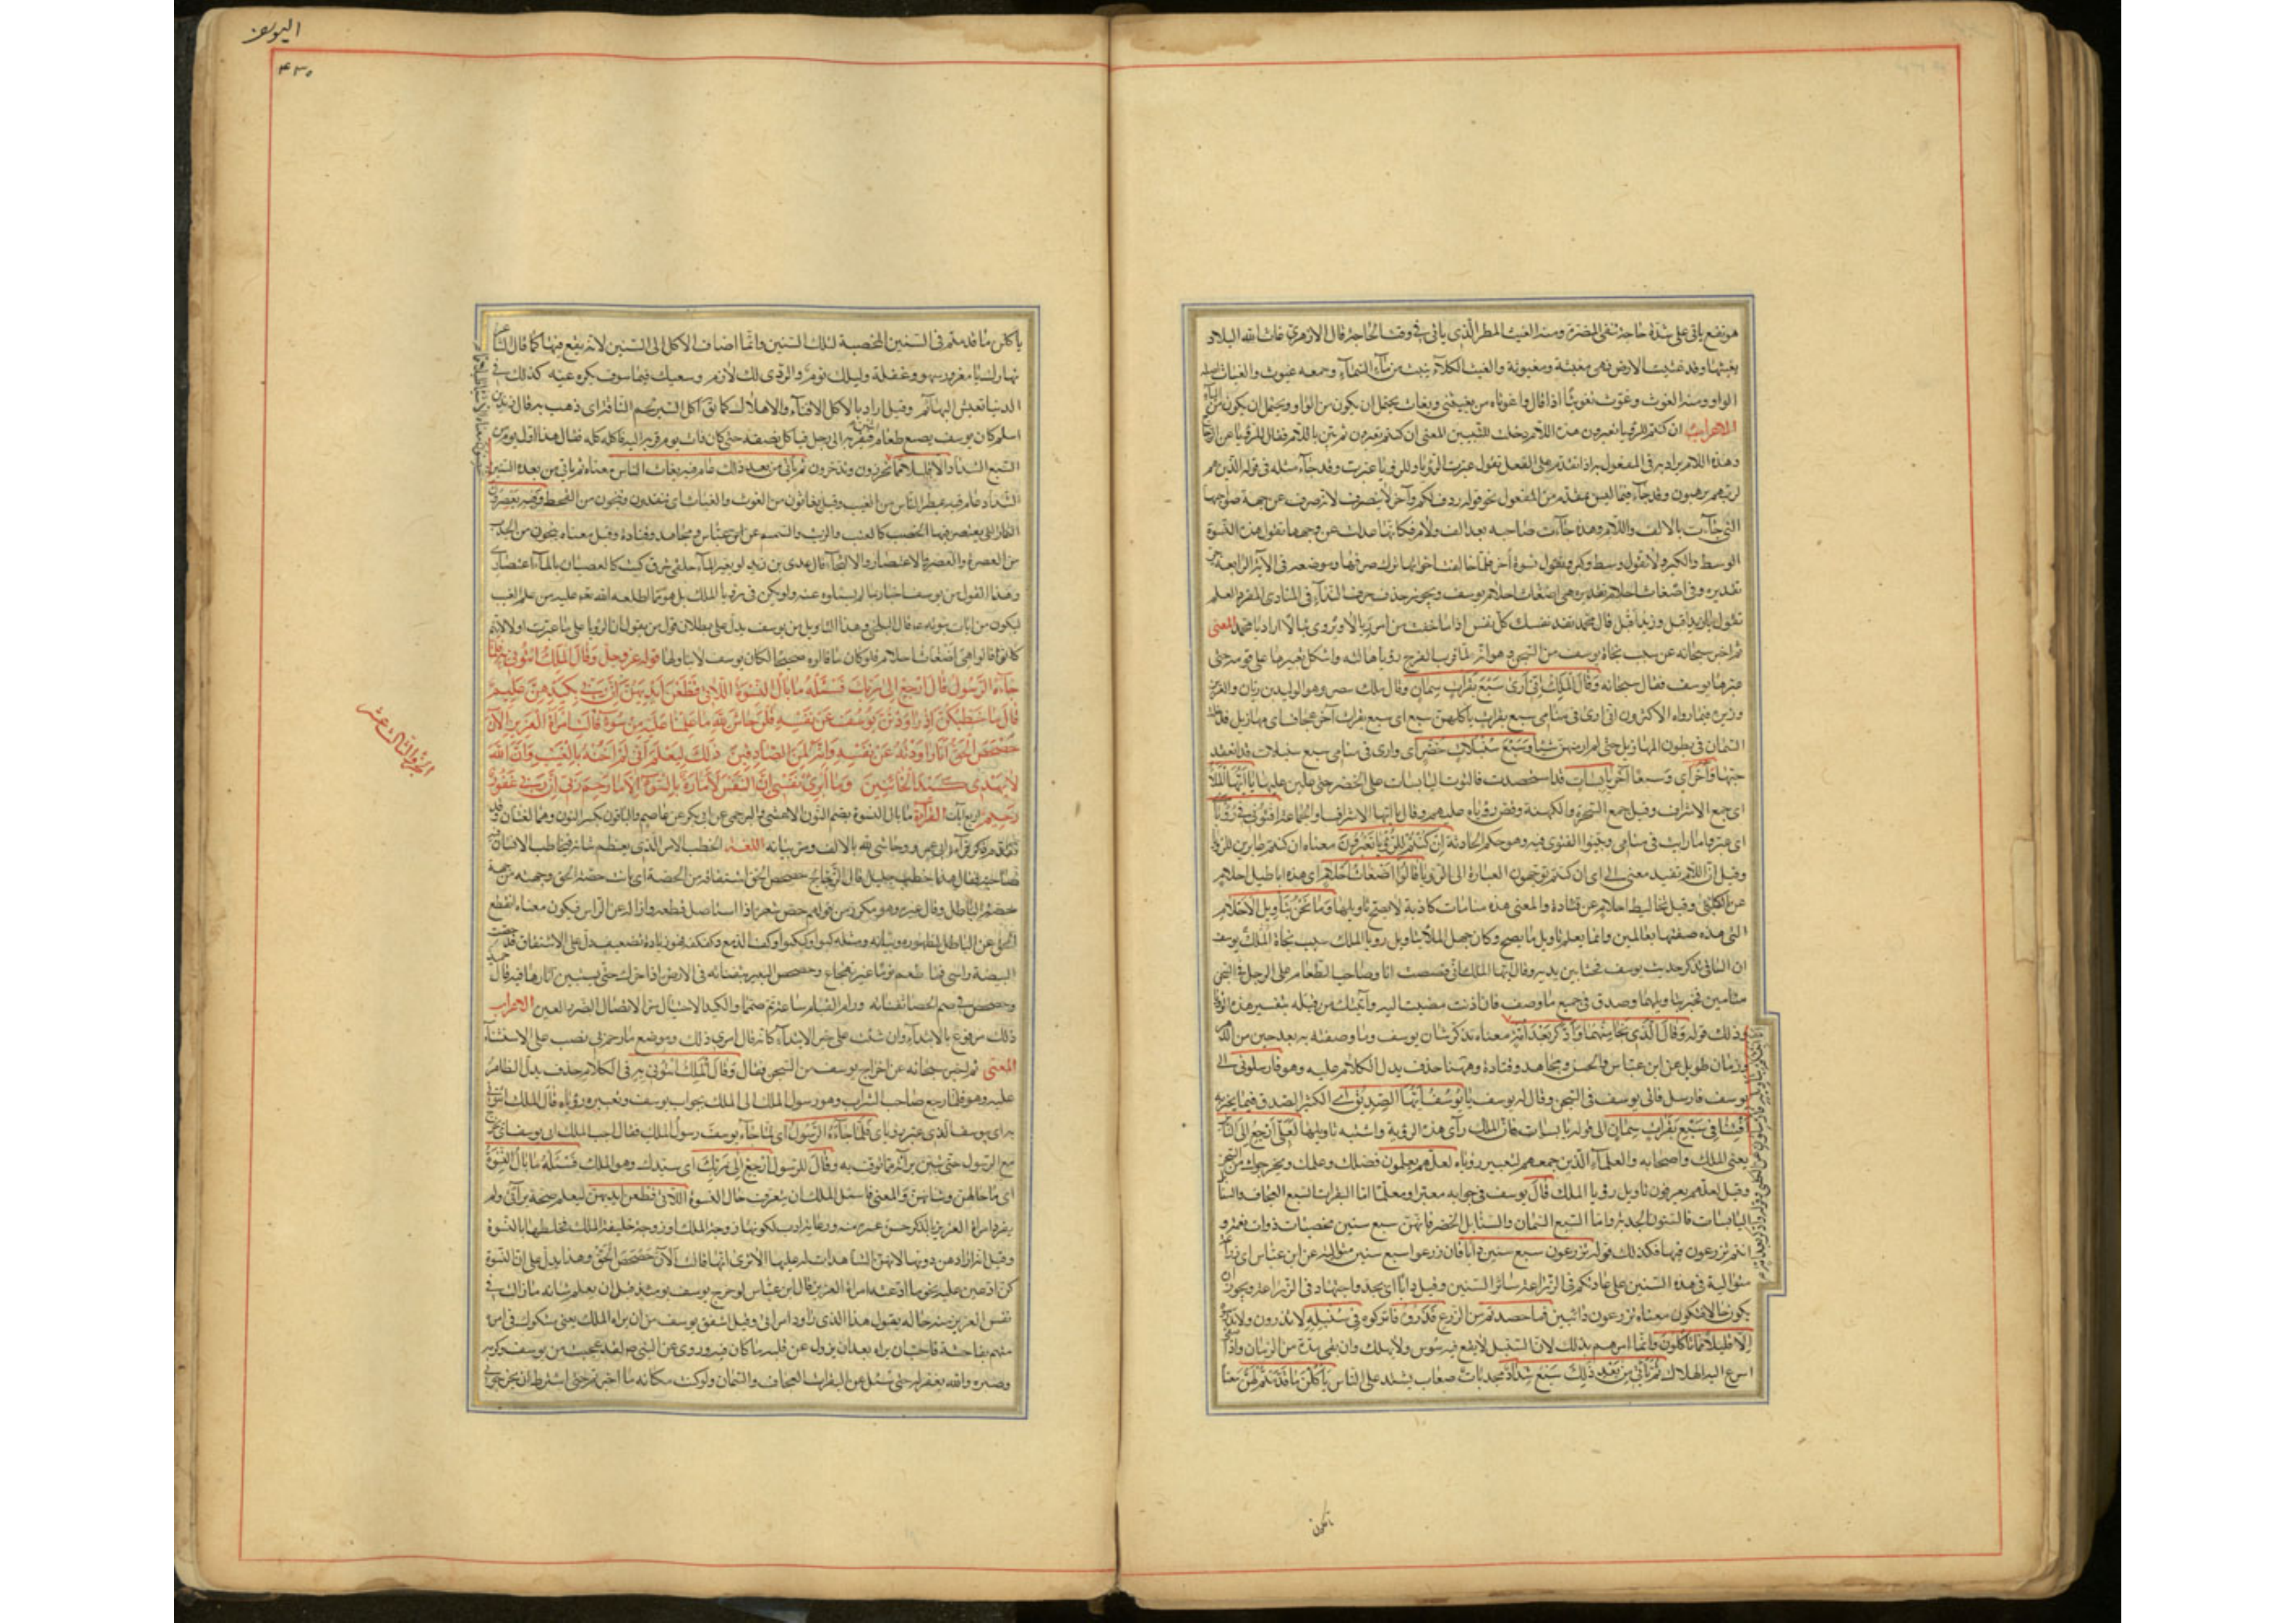 هو نفع ياتى على شدة حاجة تنفى المضرة ومنه الغيث المطر الذى ياتى فى وقت الحاجة قال الازهرى غاث الله البلاد
يغيثها وقد غيثت الارض فهى مغيثة ومغيوثة والغيث الكلأ ينبت من ماء السماء وجمعه غيوث والغياث اصله
الواو ومنه الغوث وغوث تغويثا اذا قال واغوثاه من يغيثنى ويغاث يحتمل ان يكون من الواو ويحتمل ان يكون من الياء
الاعراب ان كنتم للرؤيا تعبرون هذه اللام دخلت للتبيين المعنى ان كنتم تعبرون ثم بين باللام فقال للرؤيا عن الزجاج
وهذه اللام يراد بر فى المفعول به اذا تقدم على الفعل تقول عبرت الرؤيا وللرؤيا عبرت وقد جاء مثله فى قوله الذين هم
لربهم يرهبون وقد جاء فيما ليس بمقدم من المفعول نحو قوله ردف لكم وآخر لا ينصرف لانه صرف عن جهة صواحبها
التى جاءت بالالف واللام وهذه جاءت صاحبه بعد الف ولام فكانها عدلت عن وجهها تقول هذه النسوة
الوسط والكبر ولا تقول وسط وكبر وتقول نسوة أخر فلما خالفت اخواتها ترك صرفها وموضعه فى الآية الرابعة
تقديره وفى أضغاث احلام تقديره هى أضغاث احلام يوسف ويجوز حذف حرف النداء فى المنادى المفرد العلم
تقول يا زيد اقبل وزيد اقبل قال محمد تفد نفسك كل نفس اذا ما خفت من امر تبالا ويروى تبالا اراد يا محمد المعنى
ثم اخبر سبحانه عن سبب نجاة يوسف من السجن وهو انه لما قرب الفرج رؤيا هالته واشكل تعبيرها على قومه حتى
عبرها يوسف فقال سبحانه وقال الملك انى ارى سبع بقرات سمان وقال ملك مصر وهو الوليد بن ريان والعزيز
وزيره فيما رواه الاكثرون انى ارى فى منامى سبع بقرات ياكلهن سبع اى سبع بقرات آخر عجاف اى مهازيل فدخلت
السمان فى بطون المهازيل حتى لم ار منهن شيئا وسبع سنبلات خضر اى وارى فى منامى سبع سنبلات قد انعقد
حبها وأخر اى وسبعا آخر يابسات قد استحصدت فالتوت اليابسات على الخضر حتى غلبن عليها يا ايها الملأ
اى جمع الاشراف وقيل جمع السحرة والكهنة وقص رؤياه عليهم وقال يا ايها الاشراف افتونى فى رؤياى
اى عبروا ما رايت فى منامى وبينوا الفتوى فيه وهو حكم الحادثة ان كنتم للرؤيا تعبرون معناه ان كنتم عابرين للرؤيا
وقيل ان اللام تفيد معنى الى اى ان كنتم توجهون العبارة الى الرؤيا قالوا اضغاث احلام اى هذه اباطيل احلام
عن الكلبى وقيل تخاليط احلام عن قتادة والمعنى هذه منامات كاذبة لا يصح تاويلها وما نحن بتاويل الاحلام
التى هذه صفتها بعالمين وانما يعلم تاويل ما يصح وكان جهل الملأ بتاويل رؤيا الملك سبب نجاة الملك يوسف
ان الساقى تذكر حديث يوسف فجثا بين يديه وقال ايها الملك انى قصصت انا وصاحب الطعام على الرجل فى السجن
منامين فخبر بتاويلهما وصدق فى جميع ما وصف فان اذنت مضيت اليه واتيتك من قبله بتفسير هذه الرؤيا
وذلك قوله وقال الذى نجا منهما واذكر بعد امة معناه تذكر شان يوسف وما وصفته به بعد حين من الدهر
وزمان طويل عن ابن عباس والحسن ومجاهد وقتادة وههنا حذف يدل الكلام عليه وهو فارسلونى الى
يوسف فارسل فاتى يوسف فى السجن وقال له يوسف يا يوسف ايها الصديق اى الكثير الصدق فيما يخبر به
أفتنا فى سبع بقرات سمان الى قوله يابسات فان الملك رأى هذه الرؤية واشتبه تاويلها لعلى ارجع الى الناس
يعنى الملك واصحابه والعلماء الذين جمعهم لتعبير رؤياه لعلهم يعلمون فضلك وعلمك ويخرجوك من السجن
وقيل لعلهم يعرفون تاويل رؤيا الملك قال يوسف فى جوابه معبرا ومعلما اما البقرات السبع العجاف والسنابل
اليابسات فالسنون الجدبة واما السبع السمان والسنابل الخضر فانهن سبع سنين مخصبات ذوات نعمة و
انتم تزرعون فيها فكذلك قوله تزرعون سبع سنين دأبا فان زرعوا سبع سنين متوالية عن ابن عباس اى زراعة
متوالية فى هذه السنين على عادتكم فى الزراعة سائر السنين وقيل دأبا اى بجد واجتهاد فى الزراعة ويجوز ان
يكون حالا فيكون معناه تزرعون دائبين فما حصدتم من الزرع فذروه فاتركوه فى سنبله لا تذرون ولا تدوسوه
الا قليلا مما تأكلون وانما امرهم بذلك لان السنبل لا يقع فيه سوس ولا يهلك وان بقى مدة من الزمان واذا صفى
اسرع اليه الهلاك ثم ياتى من بعد ذلك سبع شداد مجدبات صعاب يشتد على الناس يأكلن ما قدمتم لهن معناه
اليوسف
٤٣٠
ياكلن ما قدمتم فى السنين المخصبة لتلك السنين وانما اضاف الاكل الى السنين لانه يقع فيها كما قال الشاعر
نهارك يا مغرور سهو وغفلة وليلك نوم والردى لك لازم وسعيك فيما سوف تكره غبه كذلك فى
الدنيا تعيش البهائم وقيل اراد بالاكل الافناء والاهلاك كما يق اكل السير لحم الناقة اى ذهب به قال زيد بن
اسلم كان يوسف يصنع طعام اثنين فيقربه الى رجل فياكل نصفه حتى كان ذات يوم قربه اليه فاكله كله فقال هذا اول يوم من
السبع الشداد الا قليلا مما تحرزون وتدخرون ثم ياتى من بعد ذلك عام فيه يغاث الناس معناه ثم ياتى من بعد هذه السنين
الشداد عام فيه يمطر الناس من الغيث وقيل يغاثون من الغوث والغياث اى ينقذون وينجون من القحط وفيه يعصرون
الثمار التى يعتصر فيها الخصب كالعنب والزيت والسمسم عن ابن عباس ومجاهد وقتادة وقيل معناه ينجون من الجدب
من العصرة والعصر والاعتصار والالتجاء قال عدى بن زيد لو بغير الماء حلقى شرق كنت كالغصان بالماء اعتصارى
وهذا القول من يوسف اخبار بما لم يسئلوه عنه ولم يكن فى رؤيا الملك بل هو مما اطلعه الله تعه عليه من علم الغيب
ليكون من ايات نبوته عه قال البلخى وهذا التاويل من يوسف يدل على بطلان قول من يقول ان الرؤيا على ما عبرت اولا لانهم
كانوا قالوا هى اضغاث احلام فلو كان ما قالوه صحيحا لكان يوسف لا يتاولها قوله عز وجل وقال الملك ائتونى به فلما
جاءه الرسول قال ارجع الى ربك فسئله ما بال النسوة اللاتى قطعن ايديهن ان ربى بكيدهن عليم
قال ما خطبكن اذ راودتن يوسف عن نفسه قلن حاش لله ما علمنا عليه من سوء قالت امرأة العزيز الآن
حصحص الحق انا راودته عن نفسه وانه لمن الصادقين ذلك ليعلم انى لم اخنه بالغيب وان الله
لا يهدى كيد الخائنين وما ابرئ نفسى ان النفس لأمارة بالسوء الا ما رحم ربى ان ربى غفور
رحيم اربع آيات القرآءة ما بال النسوة بضم النون الاعشى والبرجمى عن ابى بكر عن عاصم والباقون بكسر النون وهما لغتان وقد
ذكر قراءة ابى عمرو وحاشى لله بالالف ومر بيانه اللغة الخطب الامر الذى يعظم شانه فيخاطب الانسان فيه
صاحبه فقال هذا خطب جليل قال الزجاج حصحص الحق اشتقاقه من الحصة اى بانت حصة الحق وجهته من جهة
حصة الباطل وقال غيره هو مكرر من قولهم حص شعره اذا استاصل قطعه وازاله عن الراس فيكون معناه انقطع
الحق عن الباطل بظهوره وبيانه ومثله كبوا وكبكبوا وكف الدمع وكفكفه فهو زيادة تضعيف دل على الاشتقاق قد حصت
البيضة راسى فما طعم نوما غير تهجاع وحصحص البعير بثفناته فى الارض اذا حرك حتى يستبين آثارها فيه قال حميد
وحصحص فى صم الحصا ثفناته ورام القيام ساعة ثم صمما والكيد الاحتيال فى الايصال الضرر الى الغير الاعراب
ذلك مرفوع بالابتداء وان شئت على خبر الابتداء كانه قال امرى ذلك وموضع ما رحم ربى نصب على الاستثناء
المعنى ثم اخبر سبحانه عن اخراج يوسف من السجن فقال وقال الملك ائتونى به وفى الكلام حذف يدل الظاهر
عليه وهو فلما رجع صاحب الشراب وهو رسول الملك الى الملك بجواب يوسف وتعبير رؤياه قال الملك ائتونى
به اى يوسف الذى عبر رؤياى فلما جاءه الرسول اى لما جاء يوسف رسول الملك فقال اجب الملك ابى يوسف ان يخرج
مع الرسول حتى تبين براءته مما قذف به وقال للرسول ارجع الى ربك اى سيدك وهو الملك فسئله ما بال النسوة
اى ما حالهن وشانهن والمعنى فاسئل الملك ان يتعرف حال النسوة اللاتى قطعن ايديهن ليعلم صحة براءتى ولم
يفرد امرأة العزيز بالذكر حسن عشرة منه ورعاية ادب لكونها زوجة الملك او زوجة خليفة الملك فخلطها بالنسوة
وقيل انه ارادهن دونها لانهن الشاهدات له عليها الا ترى انها قالت الآن حصحص الحق وهذا يدل على ان النسوة
كن ادعين عليه نحو ما ادعته امرأة العزيز قال ابن عباس لو خرج يوسف يومئذ قبل ان يعلم شانه ما زالت فى
نفس العزيز منه حالة يقول هذا الذى راود امراتى وقيل اشفق يوسف من ان يراه الملك بعين مشكوك فى امره
متهم بفاحشة فاحب ان يراه بعد ان يزول عن قلبه ما كان فيه وروى عن النبى صه لقد عجبت من يوسف وكرمه
وصبره والله يغفر له حتى سئل عن البقرات العجاف والسمان ولو كنت مكانه ما اخبرتهم حتى اشترط ان يخرجونى
الجزو الثالث عشر